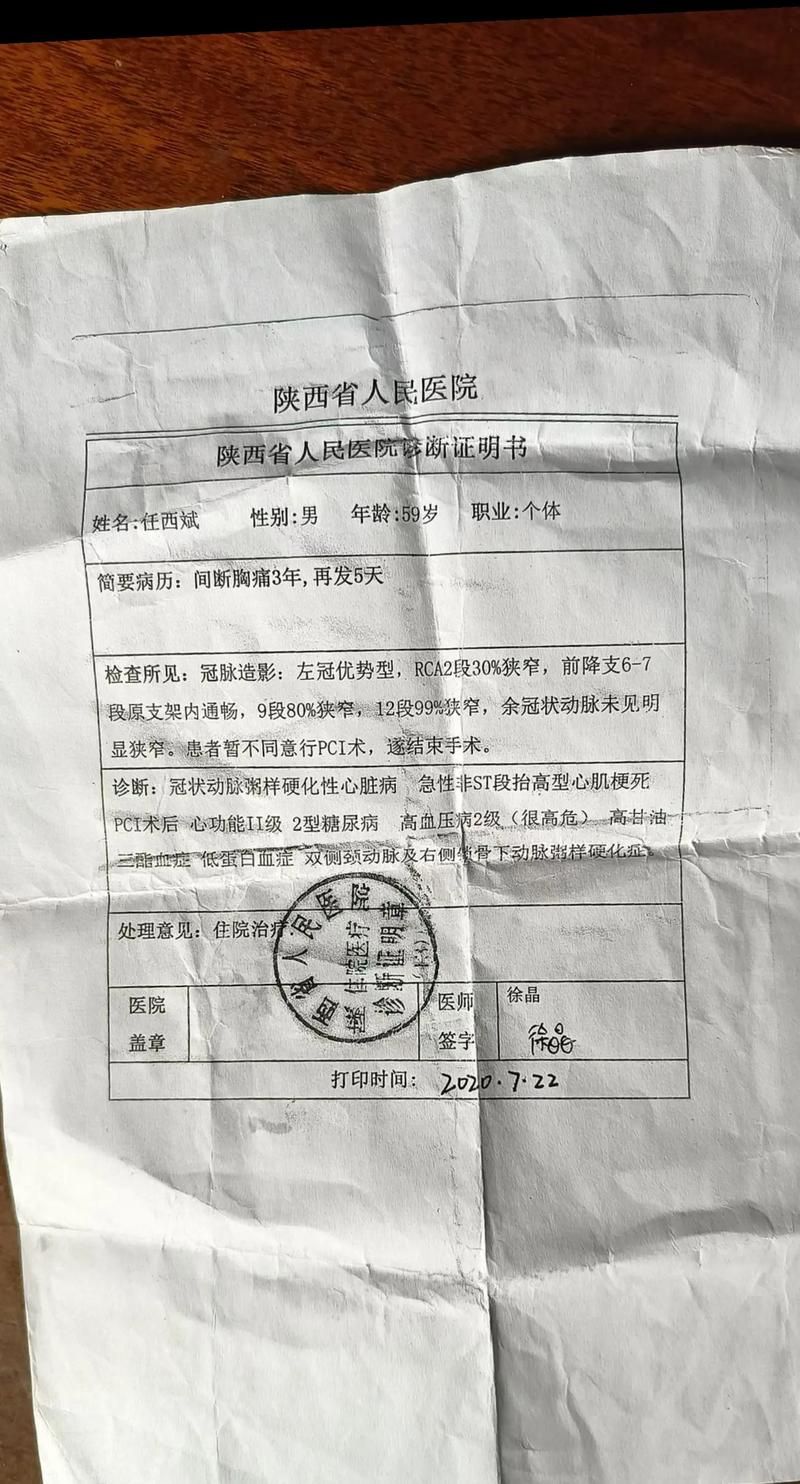 陕西省人民医院
陕西省人民医院诊断证明书
姓名:任西斌 性别:男 年龄:59岁 职业:个体
简要病历：间断胸痛3年,再发5天
检查所见：冠脉造影：左冠优势型，RCA2段30%狭窄，前降支6-7
段原支架内通畅，9段80%狭窄，12段99%狭窄，余冠状动脉未见明
显狭窄。患者暂不同意行PCI术，遂结束手术。
诊断：冠状动脉粥样硬化性心脏病 急性非ST段抬高型心肌梗死
PCI术后 心功能II级 2型糖尿病 高血压病2级（很高危） 高甘油
三酯血症 低蛋白血症 双侧颈动脉及右侧锁骨下动脉粥样硬化症。
处理意见：住院治疗.
西省人民医院
住院医疗
诊断证明章
医院
盖章
医师
签字
徐晶
徐晶
打印时间: 2020.7.22